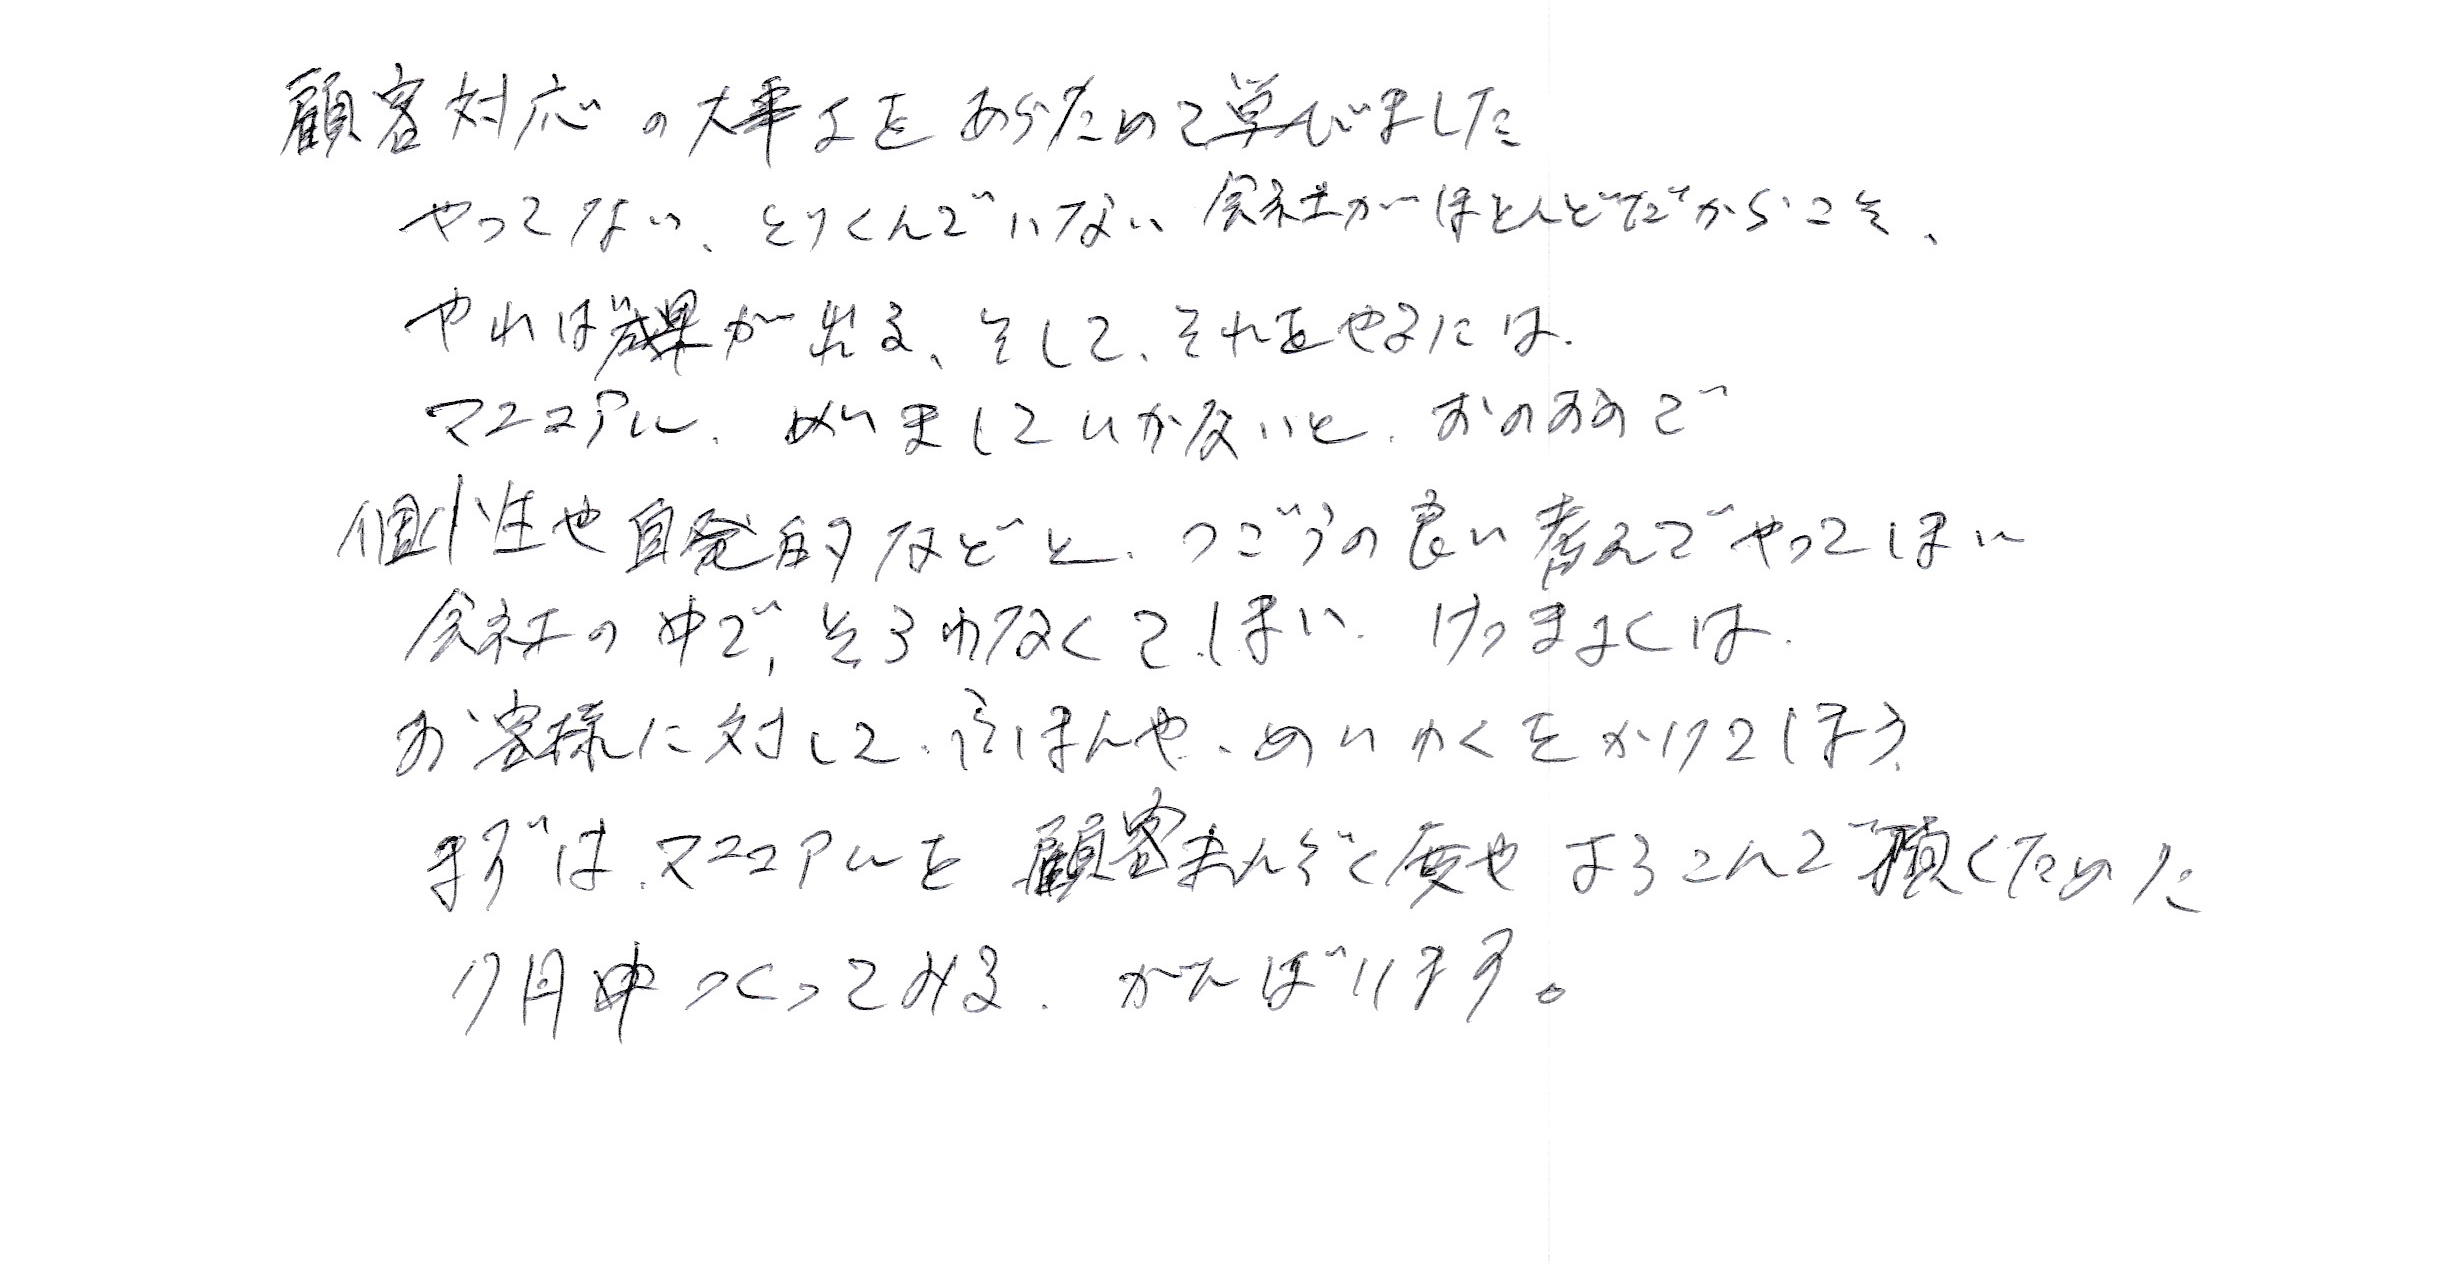 顧客対応の大事さをあらためて学びました
やってない、とりくんでいない会社がほとんどだからこそ、
やれば成果が出る、そして、それをやるには、
マニュアル、めいましていかないと、おのおので
個性や自発的などと、つごうの良い考えでやってしまい
会社の中で、そろわなくてしまい、けっきょくは、
お客様に対して、ふまんや、めいわくをかけてしまう、
まずは、マニュアルを顧客まんぞく度やよろこんで頂くために
7月中つくってみる、がんばります。